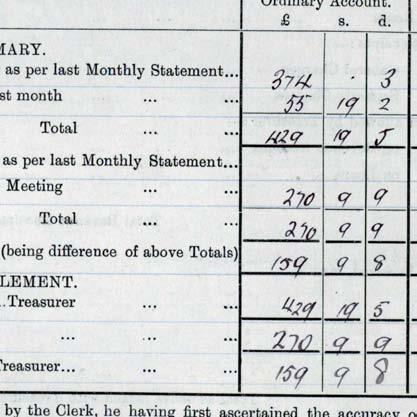 Ordinary Account.
£ s. d.
MARY.
as per last Monthly Statement... 374 . 3
st month ... ... 55 19 2
Total ... ... 429 19 5
as per last Monthly Statement...
Meeting ... ... 270 9 9
Total ... ... 270 9 9
(being difference of above Totals) 159 9 8
LEMENT.
Treasurer ... ... 429 19 5
... ... 270 9 9
reasurer... ... 159 9 8
by the Clerk, he having first ascertained the accuracy o